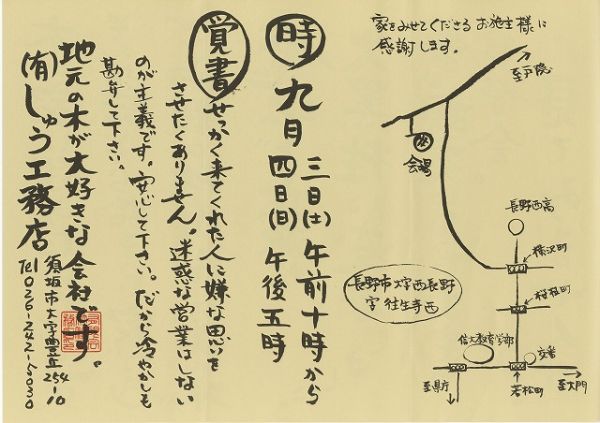 家をみせてくださる お施主様に
感謝します。
至戸隠
会場
長野西高
横沢町
桜枝町
信大教育学部
交番
若松町
至県庁
至大門
長野市大字西長野
字 往生寺西
時 九月 三日(土) 午前十時から
四日(日) 午後五時
覚書 せっかく来てくれた人に嫌な思いを
させたくありません。迷惑な営業はしない
のが主義です。安心して下さい。だから冷やかしも
勘弁して下さい。
地元の木が大好きな会社です。
(有)しゅう工務店
須坂市大字豊丘254-10
Tel 026-242-5030